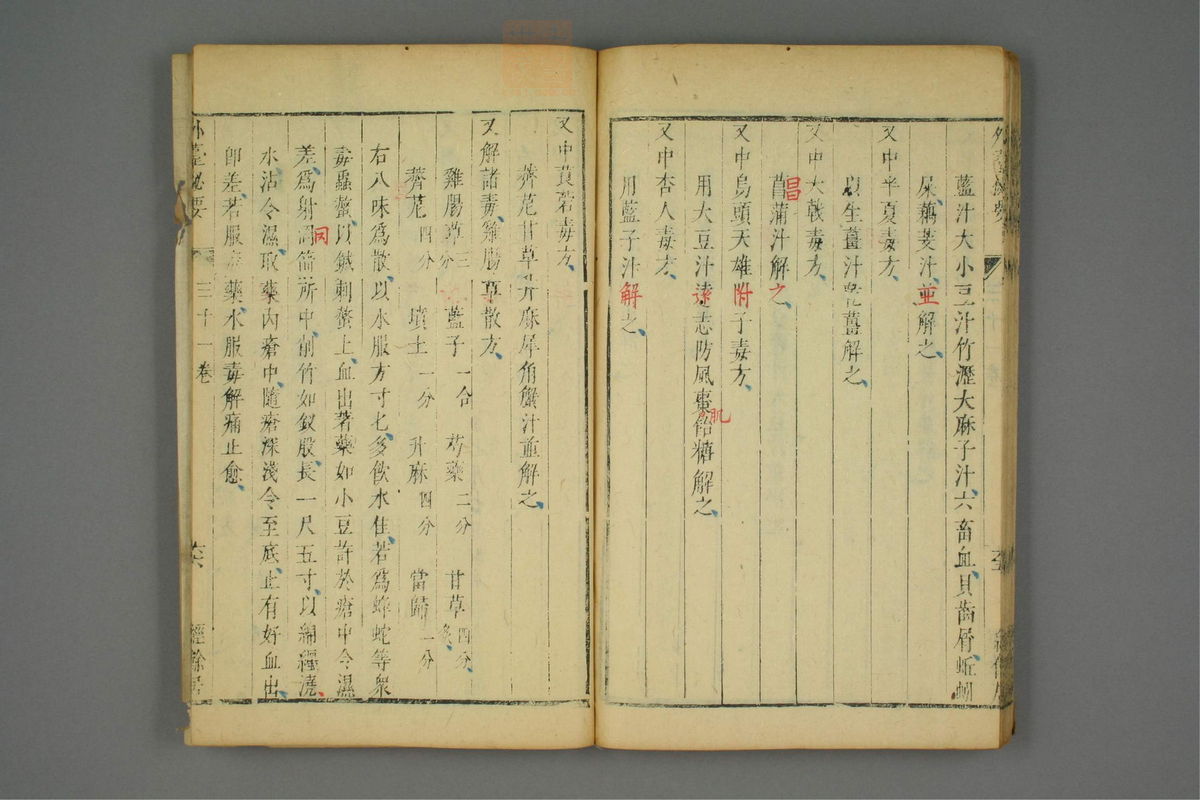 藍汁大小豆汁竹瀝大麻子汁六畜血貝齒屑蚯蚓
屎藕芰汁並解之
又中半夏毒方
以生薑汁乾薑解之
又中大戟毒方
菖蒲汁解之
昌
又中烏頭天雄附子毒方
用大豆汁遠志防風棗飴糖解之
肌
又中杏人毒方
用藍子汁解之
又中莨菪毒方
薺苨甘草升麻犀角蟹汁並解之
又解諸毒雞腸草散方
雞腸草三分 藍子一合 芍藥二分 甘草四分炙
薺苨四分 墳土一分 升麻四分 當歸一分
右八味為散以水服方寸匕多飲水佳若為蜂蛇等衆
毒蟲螫以鍼刺螫上血出著藥如小豆許於瘡中令濕
差為射罔箭所中削竹如釵股長一尺五寸以綿纏澆
水沾令濕取藥內瘡中隨瘡深淺令至底止有好血出
即差若服藥水服毒解痛止愈
外臺秘要 三十一卷 經餘居